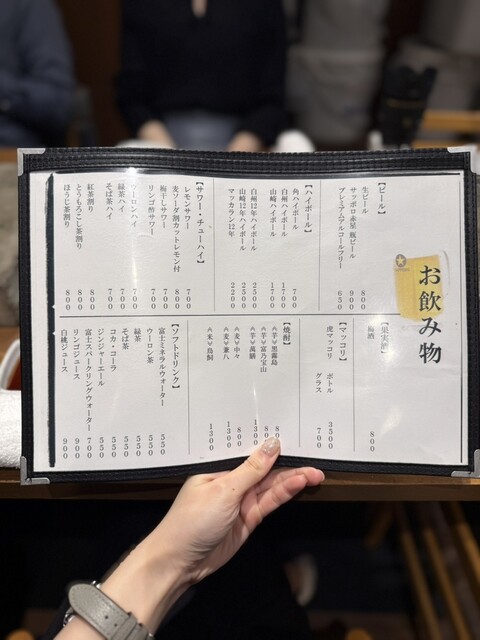 お飲み物
【ビール】
生ビール 800
サッポロ赤星 瓶ビール 900
プレミアムアルコールフリー 650
【ハイボール】
角ハイボール 700
白州ハイボール 1700
山崎ハイボール 1700
白州12年ハイボール 2500
山崎12年ハイボール 2500
マッカラン12年 2200
【サワー・チューハイ】
レモンサワー 700
麦ソーダ割カットレモン付 800
梅干しサワー 700
リンゴ酢サワー 700
ウーロンハイ 700
緑茶ハイ 700
そば茶ハイ 700
紅茶割り 800
とうもろこし茶割り 800
ほうじ茶割り 800
【果実酒】
梅酒 800
【マッコリ】
虎マッコリ ボトル 3500
グラス 700
【焼酎】
≪芋≫黒霧島
≪芋≫富乃宝山
≪芋≫萬膳 1300
≪麦≫中々 800
≪麦≫兼八 1300
≪米≫鳥飼 1300
【ソフトドリンク】
富士ミネラルウォーター 550
ウーロン茶 550
緑茶 550
そば茶 550
コカ・コーラ 550
ジンジャーエール 550
富士スパークリングウォーター 700
リンゴジュース 900
白桃ジュース 900